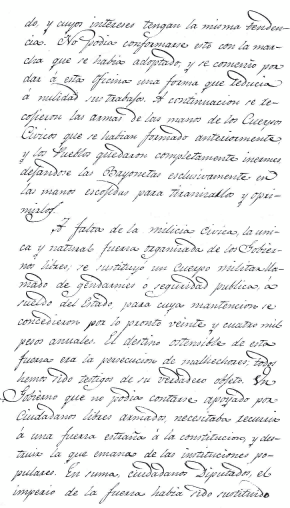 do, y cuyos intereses tengan la misma tenden-
cia. No podia conformarse esto con la mar-
cha que se habia adoptado, y se comenzó por
dar á esta oficina una forma que reducia
á nulidad sus trabajos. A continuacion se re-
cojieron las armas de las manos de los Cuerpos
Civicos que se habian formado anteriormente
y los Pueblos quedaron completamente inermes,
dejandose las Bayonetas esclusivamente en
las manos escojidas para tiranizarlos y opri-
mirlos.
A falta de la milicia civica, la uni-
ca y natural fuerza organizada de los Gobier-
nos libres, se sustituyó un Cuerpo militar lla-
mado de gendarmes ó seguridad publica, á
sueldo del Estado, para cuya mantencion se
concedieron por lo pronto veinte y cuatro mil
pesos anuales. El destino ostensible de esta
fuerza era la persecucion de malhechores; todos
hemos sido testigos de su verdadero objeto. Un
Gobierno que no podia contarse apoyado por
Ciudadanos libres armados, necesitaba recurrir
á una fuerza estraña á la constitucion, y des-
truir la que emana de las instituciones po-
pulares. En suma, ciudadanos Diputados, el
imperio de la fuerza habia sido sustituido